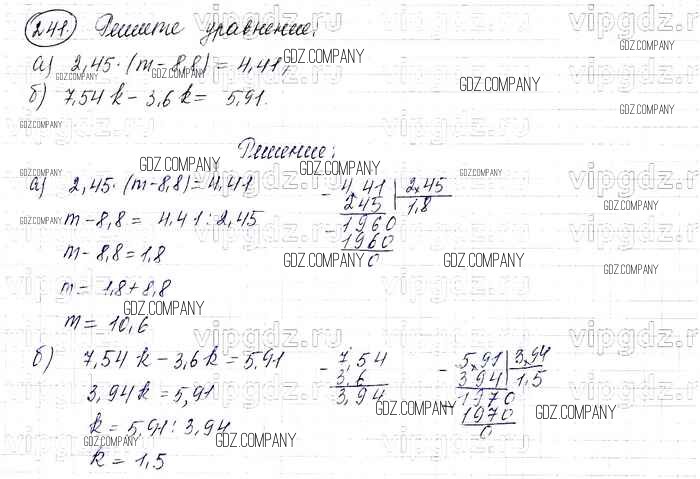 241. Решите уравнение:
а) 2,45 · (m - 8,8) = 4,41;
б) 7,54k - 3,6k = 5,91.
Решение:
а) 2,45 · (m - 8,8) = 4,41
m - 8,8 = 4,41 : 2,45
m - 8,8 = 1,8
m = 1,8 + 8,8
m = 10,6
- 4,41 | 2,45
245 | 1,8
- 1960
1960
0
б) 7,54k - 3,6k = 5,91
3,94k = 5,91
k = 5,91 : 3,94
k = 1,5
- 7,54
3,6
3,94
- 5,91 | 3,94
394 | 1,5
1970
1970
0
GDZ.COMPANY
vipgdz.ru